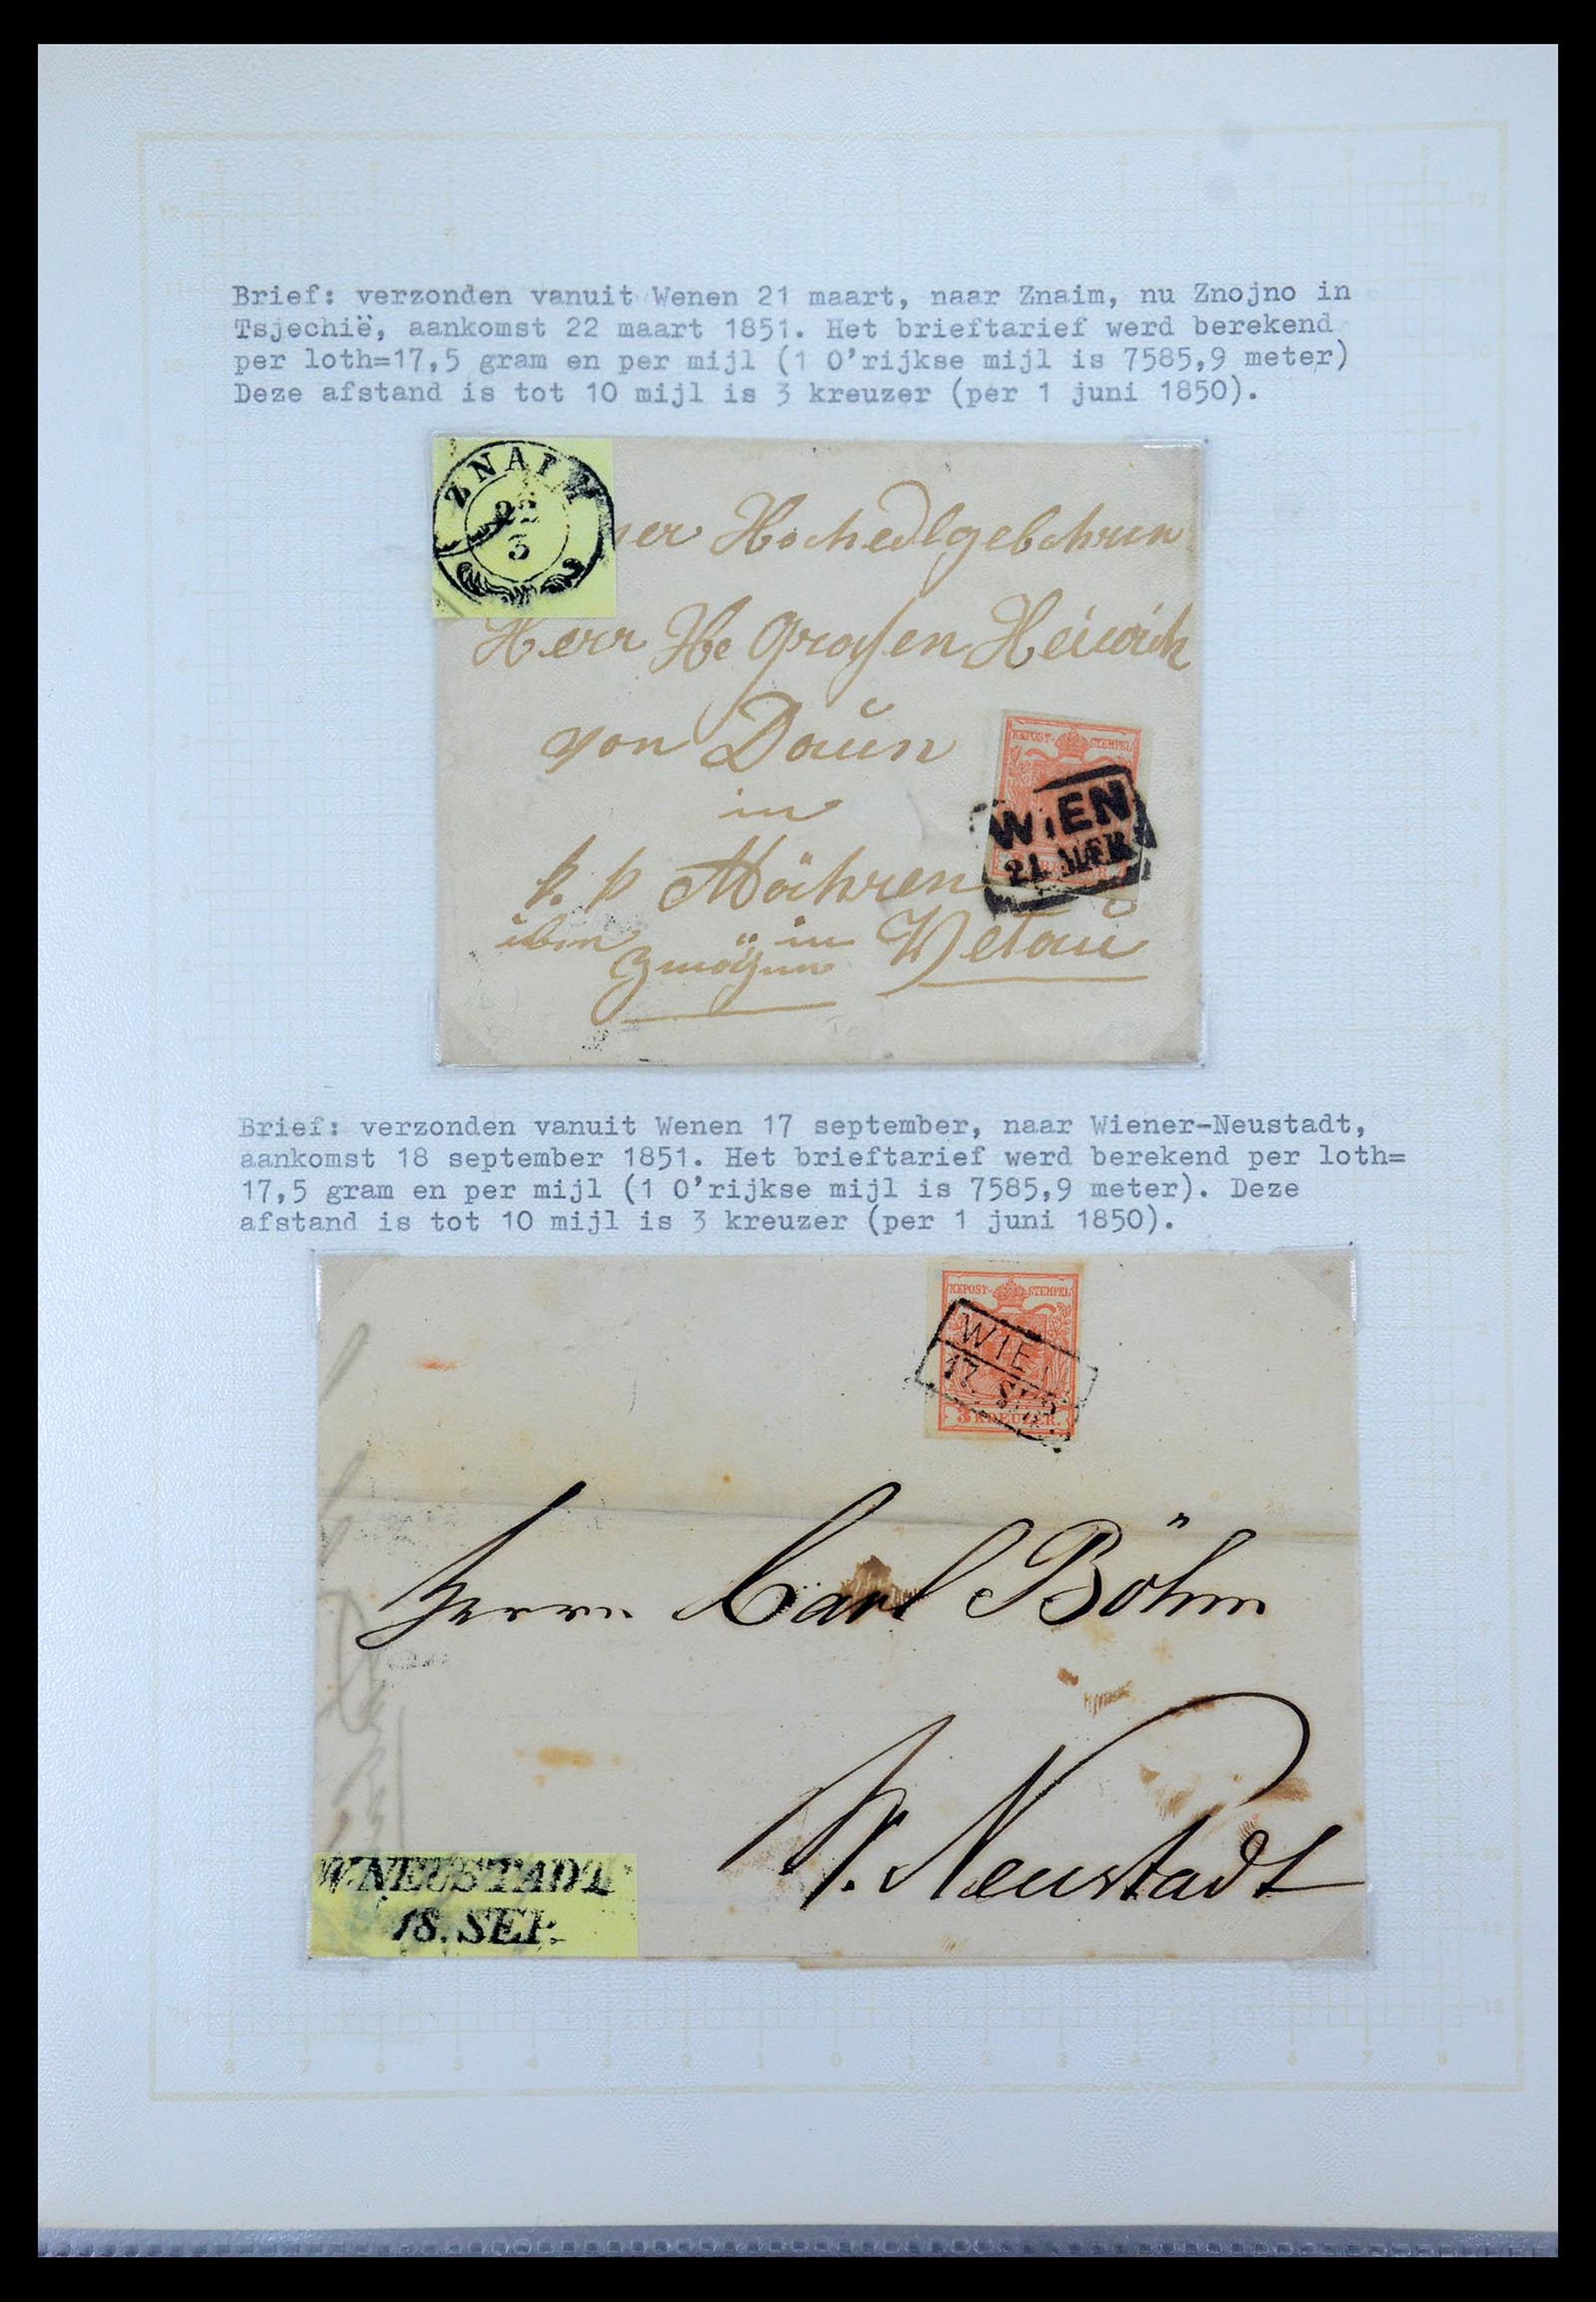 Brief: verzonden vanuit Wenen 21 maart, naar Znaim, nu Znojno in
Tsjechië, aankomst 22 maart 1851. Het brieftarief werd berekend
per loth=17,5 gram en per mijl (1 O'rijkse mijl is 7585,9 meter)
Deze afstand is tot 10 mijl is 3 kreuzer (per 1 juni 1850).
ZNAIM
22
3
Hochedlgebohren
Herr He Grafen Heinrich
von Daun
in
KKPOST-STEMPEL
WIEN
21. MÆR.
Mähren
in Vetau
Brief: verzonden vanuit Wenen 17 september, naar Wiener-Neustadt,
aankomst 18 september 1851. Het brieftarief werd berekend per loth=
17,5 gram en per mijl (1 O'rijkse mijl is 7585,9 meter). Deze
afstand is tot 10 mijl is 3 kreuzer (per 1 juni 1850).
KKPOST-STEMPEL
WIEN
17. SEP.
3 KREUZER.
Herrn Carl Böhm
W. Neustadt
W.NEUSTADT
18. SEP.
12 12
12 12
8 7 6 5 4 3 2 1 0 1 2 3 4 5 6 7 8